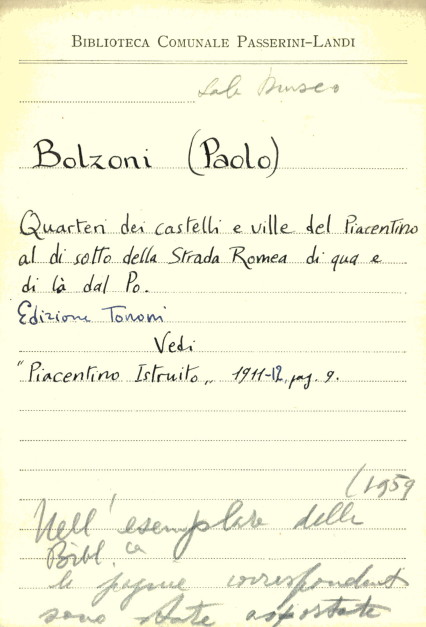 BIBLIOTECA COMUNALE PASSERINI-LANDI
Sala Museo
Bolzoni (Paolo)
Quartieri dei castelli e ville del Piacentino
al di sotto della Strada Romea di qua e
di là dal Po.
Edizione Tononi
Vedi
"Piacentino Istruito„ 1911-12, pag. 9.
(1959
Nell'esemplare della
Bibl.ca
le pagine corrispondenti
sono state asportate